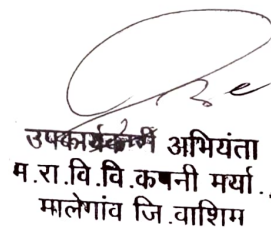 उपकार्यकारी अभियंता
म.रा.वि.वि.कंपनी मर्या.
मालेगांव जि.वाशिम